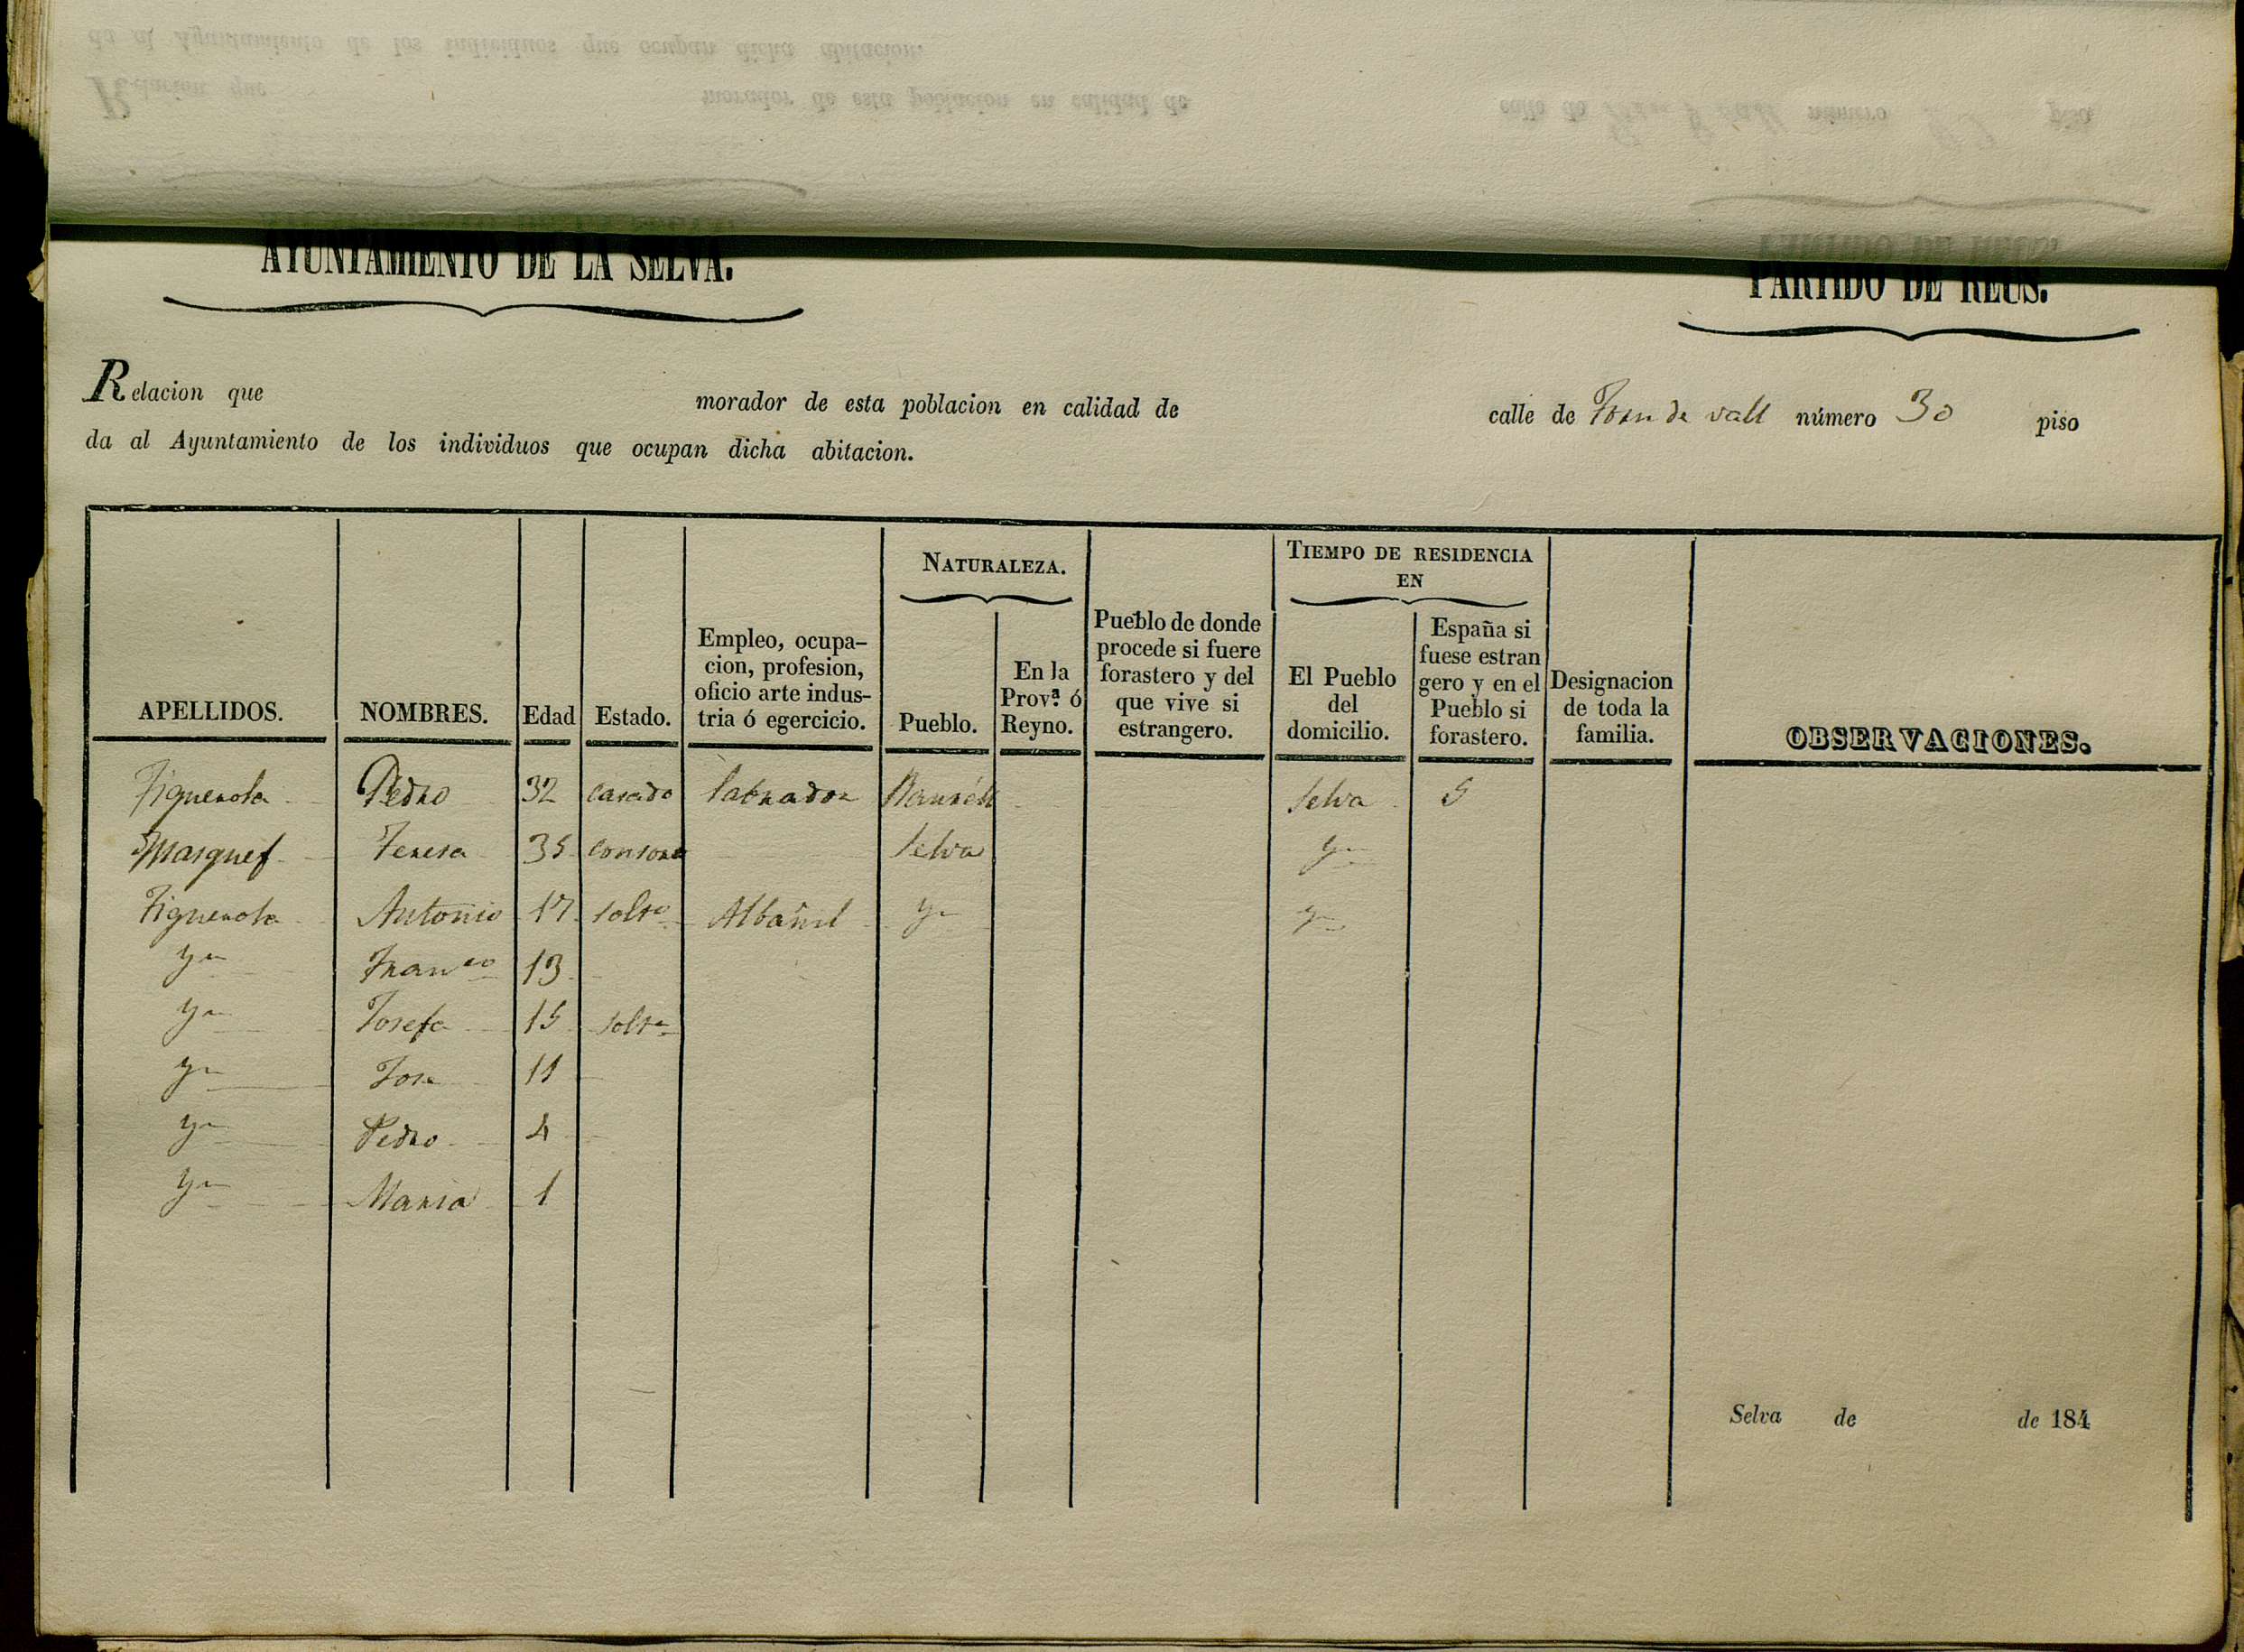 AYUNTAMIENTO DE LA SELVA.
PARTIDO DE REUS.
Relacion que morador de esta poblacion en calidad de calle de número 30 piso
da al Ayuntamiento de los individuos que ocupan dicha abitacion.
NATURALEZA.
TIEMPO DE RESIDENCIA EN
APELLIDOS.
NOMBRES.
Edad
Estado.
Empleo, ocupa-
cion, profesion,
oficio arte indus-
tria ó egercicio.
Pueblo.
En la
Prov.ª ó
Reyno.
Pueblo de donde
procede si fuere
forastero y del
que vive si
estrangero.
El Pueblo
del
domicilio.
España si
fuese estran
gero y en el
Pueblo si
forastero.
Designacion
de toda la
familia.
OBSERVACIONES.
Figuerola Pedro 32 casado labrador Selva 5
Masquef Teresa 35 consorte Selva yn
Figuerola Antonio 17 solto Albañil yn yn
yn Franco 13
yn Josefa 15 solta
yn Jose 11
yn Pedro 4
yn Maria 1
Selva de de 184